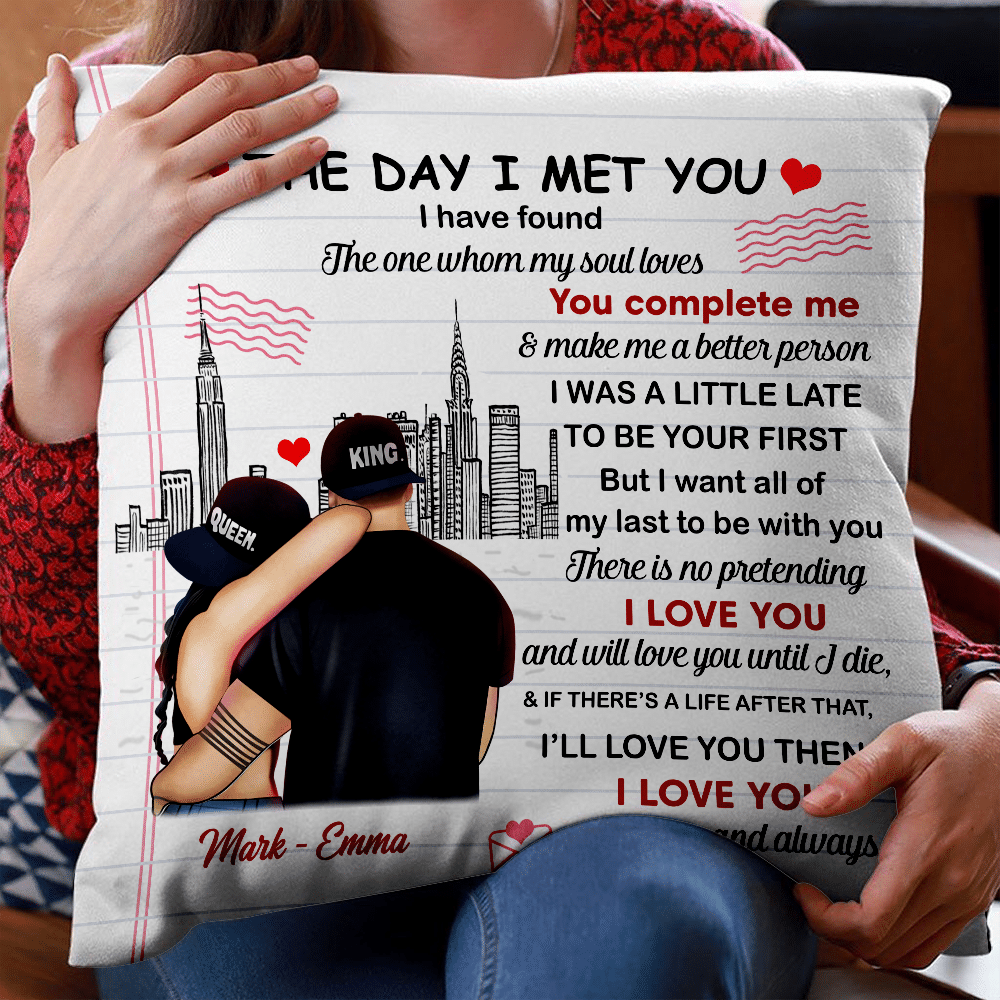 THE DAY I MET YOU
I have found
The one whom my soul loves
You complete me
& make me a better person
I WAS A LITTLE LATE
TO BE YOUR FIRST
But I want all of
my last to be with you
There is no pretending
I LOVE YOU
and will love you until I die,
& IF THERE'S A LIFE AFTER THAT,
I'LL LOVE YOU THEN
I LOVE YOU
and always
KING.
QUEEN.
Mark - Emma